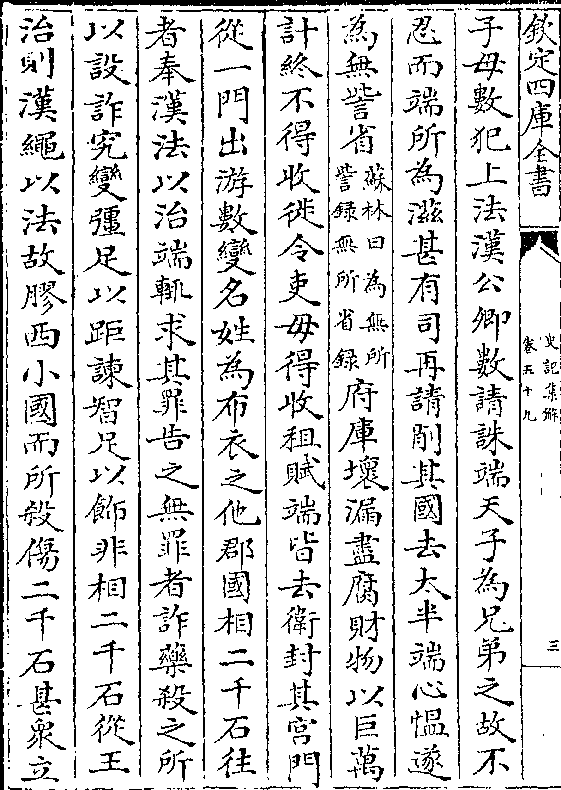 欽定四庫全書
史記集解
卷五十九
三
子母數犯上法漢公卿數請誅端天子為兄弟之故不
忍而端所為滋甚有司再請削其國去太半端心慍遂
為無訾省蘇林曰為無所訾録無所省録府庫壞漏盡腐財物以巨萬
計終不得收徙令吏毋得收租賦端皆去衛封其宮門
從一門出游數變名姓為布衣之他郡國相二千石往
者奉漢法以治端輒求其罪告之無罪者詐藥殺之所
以設詐究變彊足以距諫智足以飾非相二千石從王
治則漢繩以法故膠西小國而所殺傷二千石甚衆立